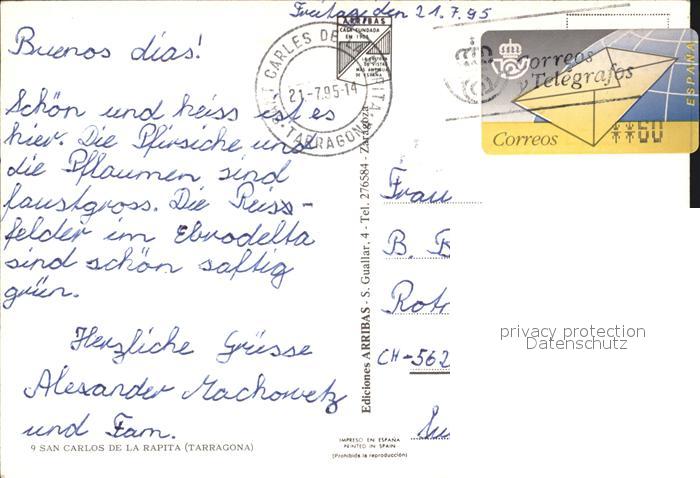 Freitag den 21.7.95
Buenos dias!
Schön und heiss ist es
hier. Die Pfirsiche und
die Pflaumen sind
faustgross. Die Reis-
felder im Ebrodelta
sind schön saftig
grün.
Herzliche Grüsse
Alexander Machowetz
und Fam.
9 SAN CARLOS DE LA RAPITA (TARRAGONA)
ARRIBAS
CASA FUNDADA
EN 1905
LA EDITORA
DE VISTAS
MAS ANTIGUA
DE ESPAÑA
SANT CARLES DE
21-7.95-14
TARRAGONA
Ediciones ARRIBAS - S. Guallar, 4 - Tel. 276584 - Zaragoza
IMPRESO EN ESPAÑA
PRINTED IN SPAIN
(Prohibida la reproducción)
Correos
y Telégrafos
ESPAÑA
Correos
**60
Frau
B.
CH-562
privacy protection
Datenschutz